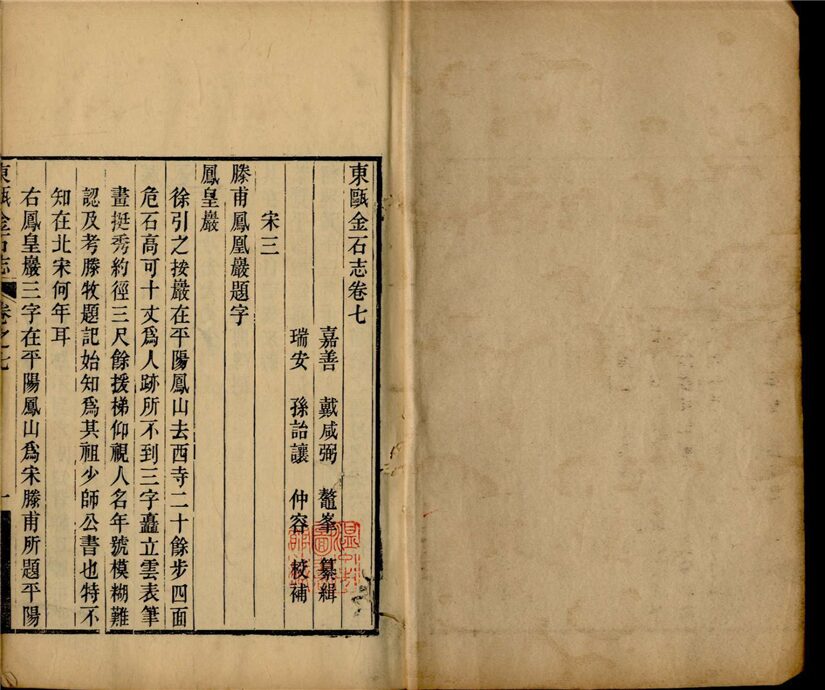 東甌金石志卷七
嘉善 戴咸弼 鼇峯 纂緝
瑞安 孫詒讓 仲容 校補
宋三
滕甫鳳凰巖題字
鳳皇巖
徐引之按巖在平陽鳳山去西寺二十餘步四面
危石高可十丈爲人跡所不到三字矗立雲表筆
畫挺秀約徑三尺餘援梯仰視人名年號模糊難
認及考滕牧題記始知爲其祖少師公書也特不
知在北宋何年耳
右鳳皇巖三字在平陽鳳山爲宋滕甫所題平陽
東甌金石志 卷之七 一